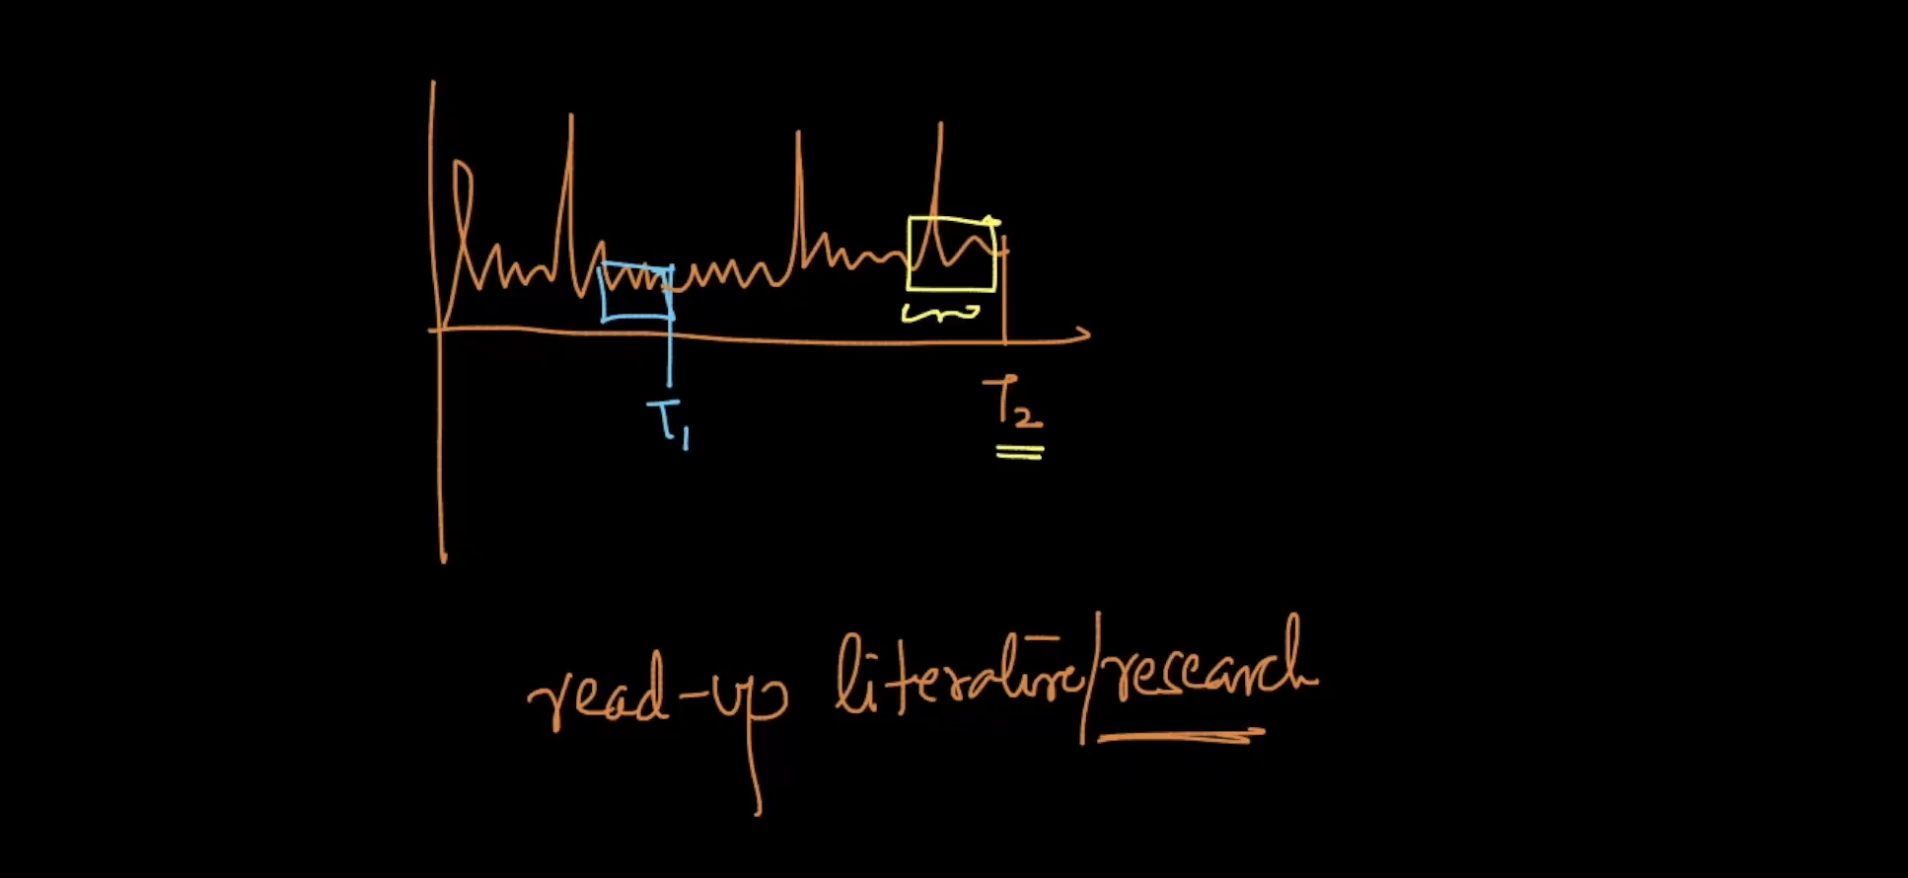 T1
T2
read-up literature/research